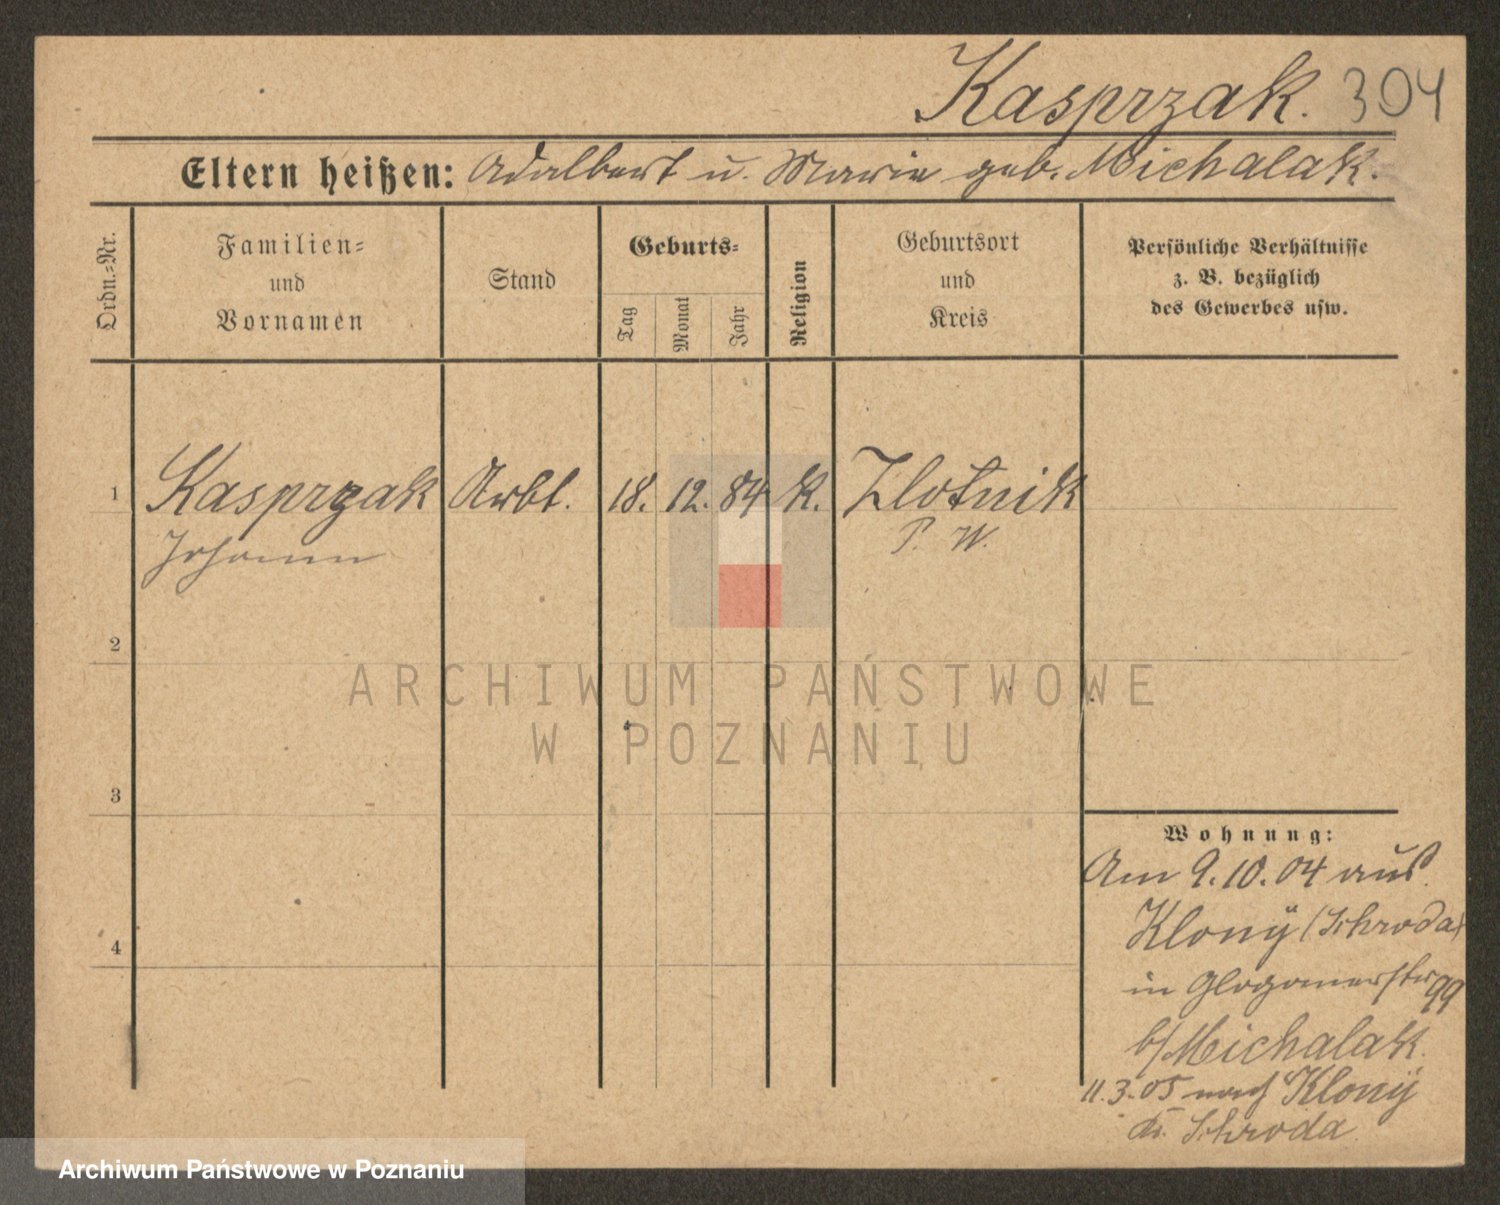 Kasprzak. 304
Eltern heißen: Adalbert u. Marie geb. Michalak.
Ordn.=Nr.
Familien=
und
Vornamen
Stand
Geburts=
Tag
Monat
Jahr
Religion
Geburtsort
und
Kreis
Persönliche Verhältnisse
z. B. bezüglich
des Gewerbes usw.
1 Kasprzak Arbt. 18. 12. 84 K. Zlotnik
Johann P. W.
2
3
4
Wohnung:
Am 9.10.04 aus
Klony (Schroda)
in Glogauerstr 99
b/Michalak.
11.3.05 nach Klony
Kr. Schroda
ARCHIWUM PAŃSTWOWE
W POZNANIU
Archiwum Państwowe w Poznaniu